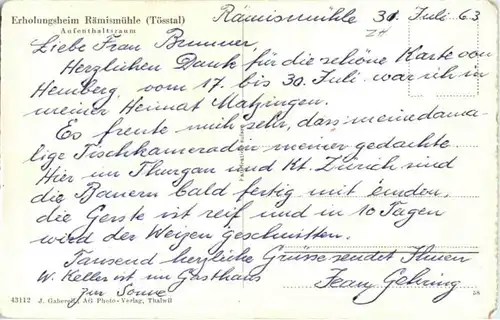 Erholungsheim Rämismühle (Tösstal)
Aufenthaltsraum
Rämismühle 31. Juli 63
ZH
Liebe Frau Brunner,
Herzlichen Dank für die schöne Karte von
Hemberg, vom 17. bis 30. Juli war ich in
meiner Heimat Matzingen.
Es freute mich sehr, dass meine dama-
lige Tischkameradin meiner gedachte.
Hier im Thurgau und Kt. Zürich sind
die Bauern bald fertig mit emden,
die Gerste ist reif und in 10 Tagen
wird der Weizen geschnitten.
Tausend herzliche Grüsse sendet Ihnen
W. Keller ist im Gasthaus Jean Gehring
zur Sonne
43112 J. Gaberell AG Photo-Verlag, Thalwil